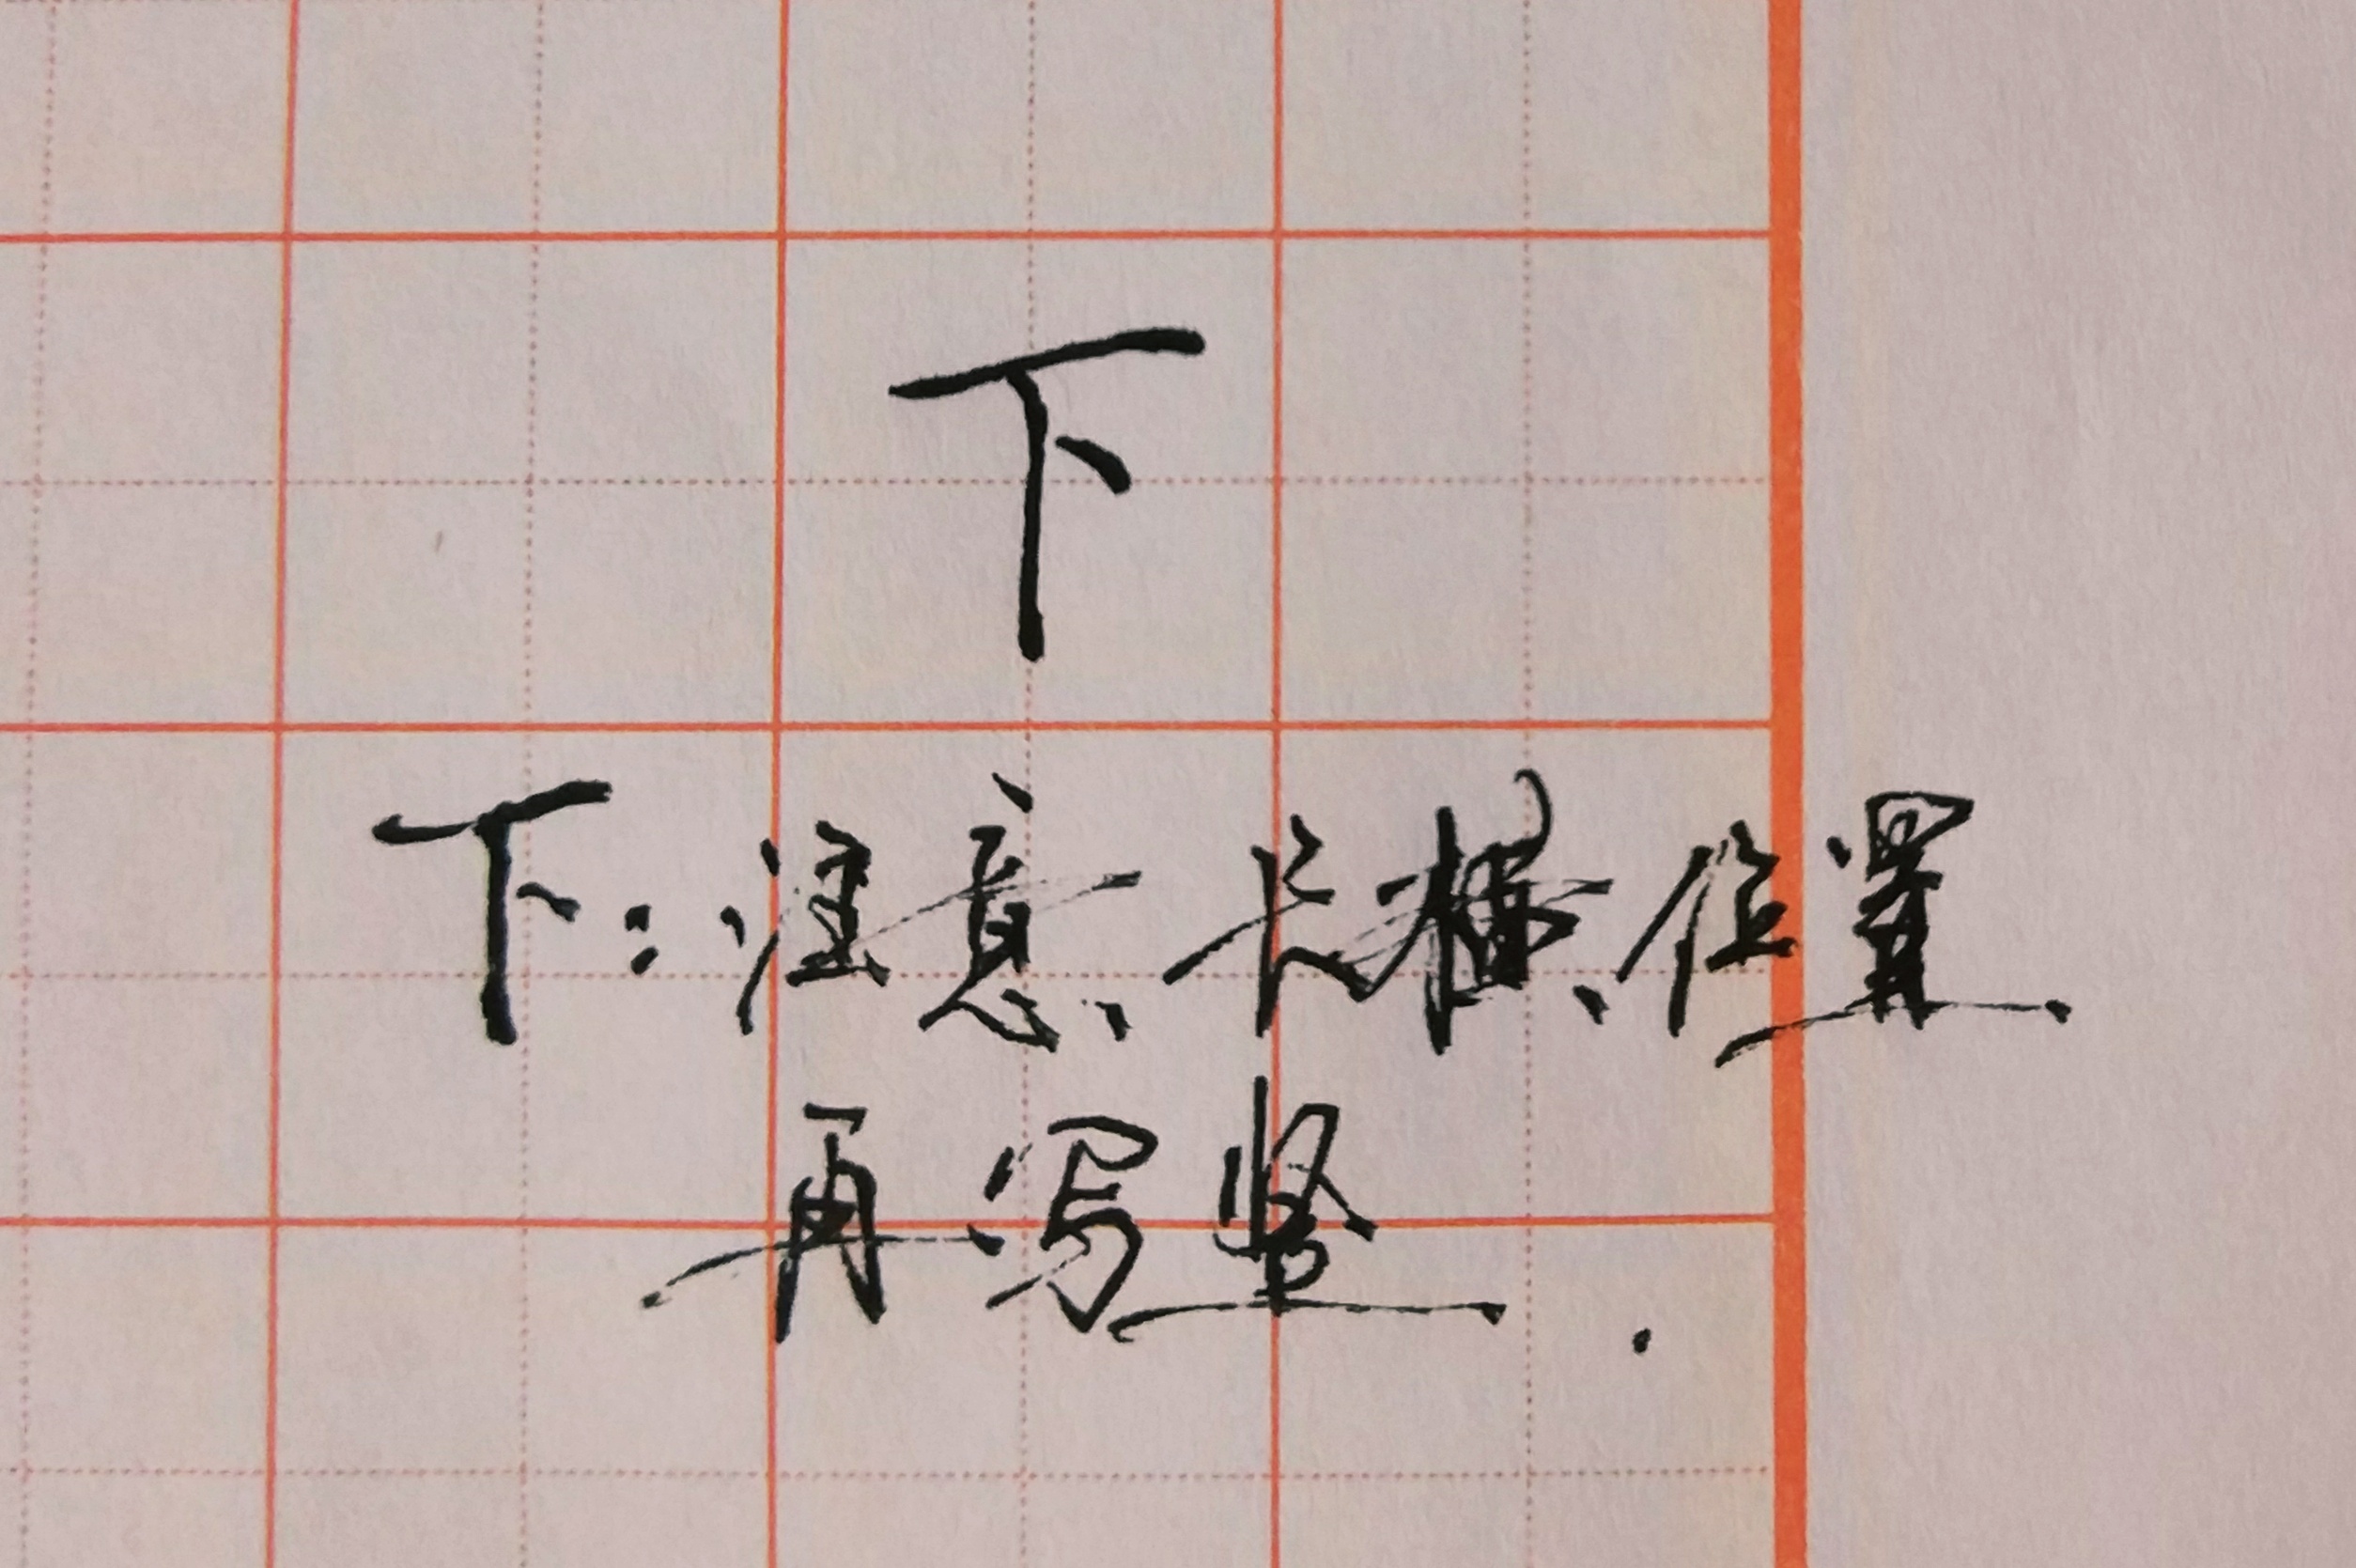 下
下：注意长横位置
再写竖.